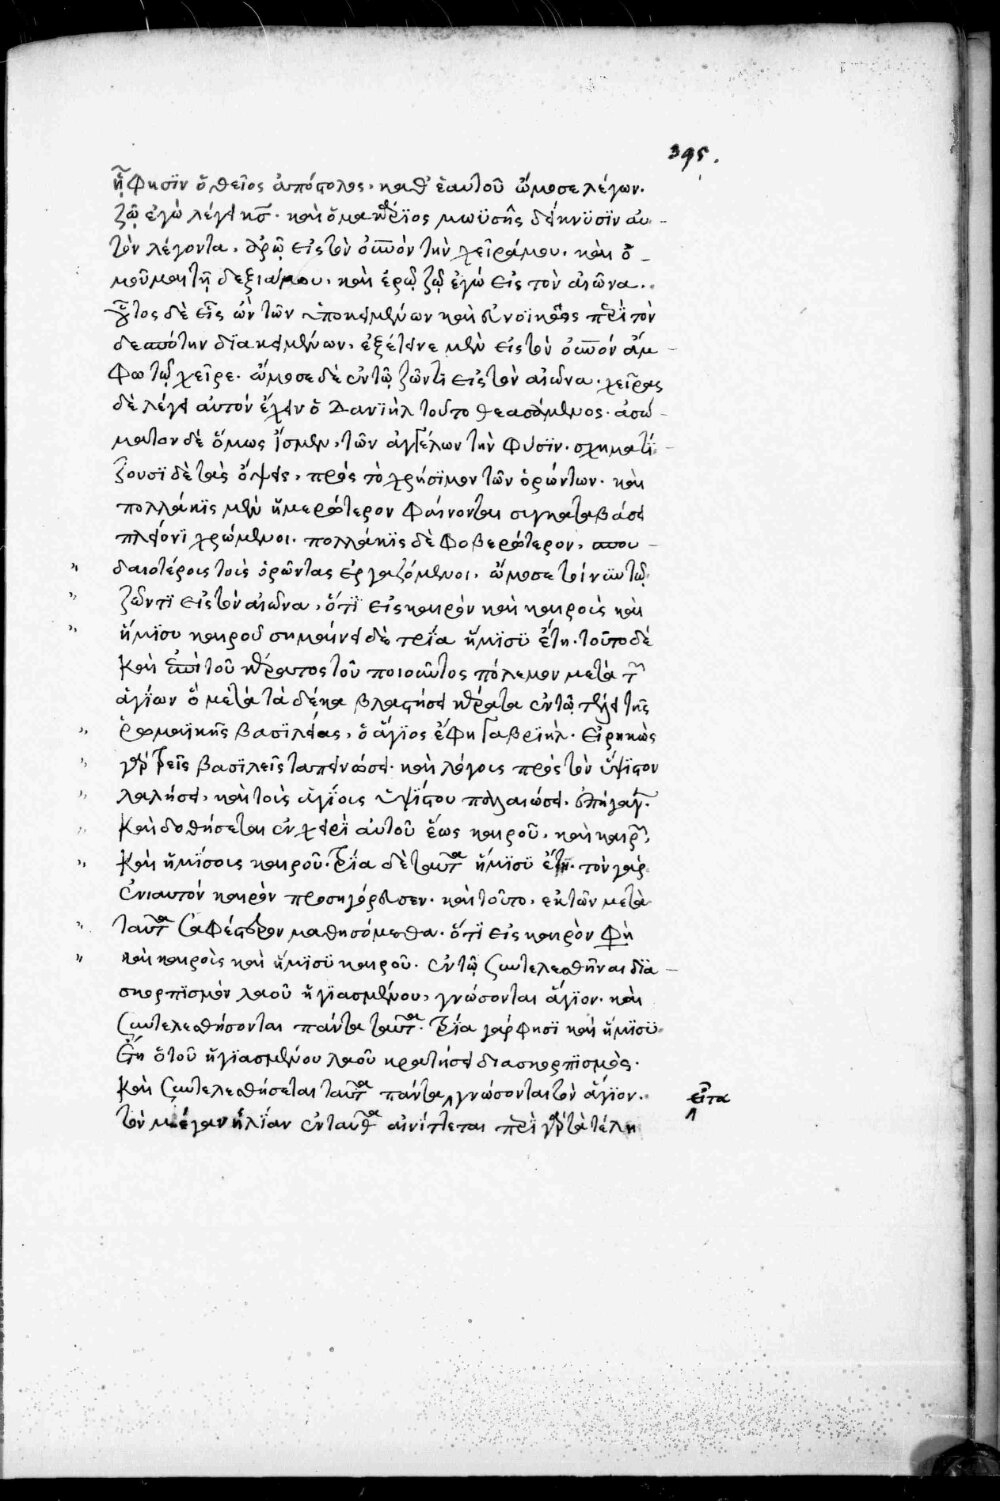 395.
ᾗ φησῒν ὁ θεῖος ἀπόστολος, καθ' ἑαυτοῦ ὤμοσε λέγων.
ζῶ ἐγὼ λέγει κς. καὶ ὁ μακάριος μωϋσῆς δείκνυσϊν αυ-
τὸν λέγοντα, ἀρῶ εἰς τὸν οὐνὸν τὴν χεῖρά μου, καὶ ὀ-
μοῦμαι τῇ δεξιᾷ μου, καὶ ἐρῶ ζῶ ἐγώ εἰς τὸν αἰῶνα.
οὗτος δὲ εἷς ὢν τῶν ὑποκειμένων καὶ εὐνοϊκῶς περὶ τὸν
δεσπότην δϊακειμένων, ἐξέτεινε μὲν εἰς τὸν οὐνόν ἄμ-
φω τὼ χεῖρε. ὤμοσε δὲ ἐν τῷ ζῶντι εἰς τὸν αἰῶνα. χεῖρας
δὲ λέγει αυτόν ἔχειν ὁ Δανϊὴλ τοῦτο θεασάμενος. ἀσώ-
ματον δὲ ὅμως ἴσμεν, τῶν ἀγγέλων τὴν φύσϊν. σχηματί-
ζουσϊ δὲ τὰς ὄψεις, πρὸς τὸ χρήσϊμον τῶν ὁρώντων. καὶ
πολλάκϊς μὲν ἡμερώτερον φαίνονται συγκαταβάσει
πλείονϊ χρώμενοι. πολλάκϊς δὲ φοβερώτερον, σπου-
δαιοτέροις τοὺς ὁρῶντας ἐργαζόμενοι, ὤμοσε τοίνυν τῷ
ζῶντϊ εἰς τὸν αἰῶνα, ὅτϊ εἰς καιρὸν καὶ καιροὺς καὶ
ἥμϊσυ καιροῦ σημαίνει δὲ τρΐα ἥμϊσϋ ἔτη. τοῦτο δὲ
καὶ ἐπὶ τοῦ κέρατος τοῦ ποιοῦντος πόλεμον μετὰ τῶν
ἁγΐων ὃ μετὰ τὰ δέκα βλαστήσει κέρατα ἐν τῷ τέλει τῆς
ῥωμαϊκῆς βασϊλείας, ὁ ἅγϊος ἔφη Γαβρϊήλ. εἰρηκὼς
γὰρ τρεῖς βασϊλεῖς ταπεινώσει. καὶ λόγους πρὸς τὸν ὕψϊστον
λαλήσει, καὶ τοὺς ἁγΐους ὑψΐστου παλαιώσει. ἐπήγαγε.
καὶ δοθήσεται ἐν χειρϊ αὐτοῦ ἕως καιροῦ, καὶ καιρῶν,
καὶ ἡμΐσους καιροῦ. τρΐα δὲ ταῦτα ἥμϊσϋ ἔτη. τὸν γὰρ
ἐνιαυτόν καιρὸν προσηγόρευσεν. καὶ τοῦτο, ἐκ τῶν μετὰ
ταῦτα σαφέστερον μαθησόμεθα. ὅτϊ εἰς καιρὸν φη
καὶ καιροὺς καὶ ἥμϊσϋ καιροῦ. ἐν τῷ συντελεσθῆναι δϊα-
σκορπϊσμὸν λαοῦ ἡγϊασμένου, γνώσονται ἅγϊον. καὶ
συντελεσθήσονται πάντα ταῦτα. τρΐα γάρ φησϊ καὶ ἥμϊσϋ
ἔτη ὁ τοῦ ἡγϊασμένου λαοῦ κρατήσει διασκορπϊσμὸς.
καὶ συντελεσθήσεται ταῦτα πάντα, γνώσονται τὸν ἅγϊον.
εἶτα
τὸν μέγαν ἠλΐαν ἐνταῦθα αἰνίττεται περὶ γὰρ τὰ τέλη